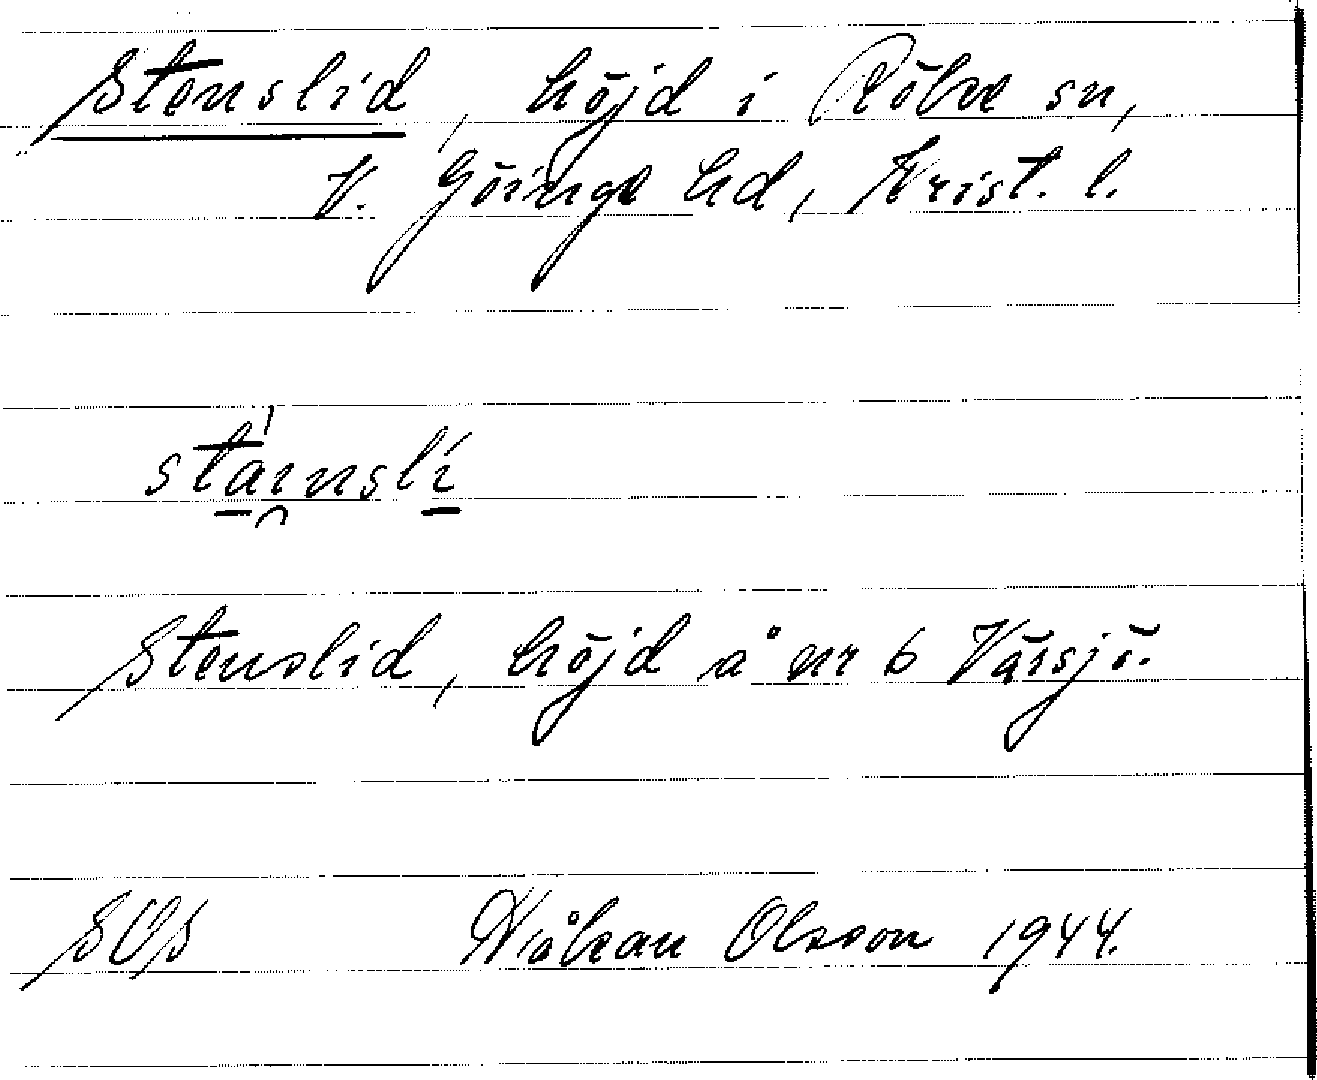 Stenslid, höjd i Röke sn,
V. Göinge hd, Krist. l.
stainsli
Stenslid, höjd å nr 6 Väisjö.
SOS Håkan Olsson 1944.